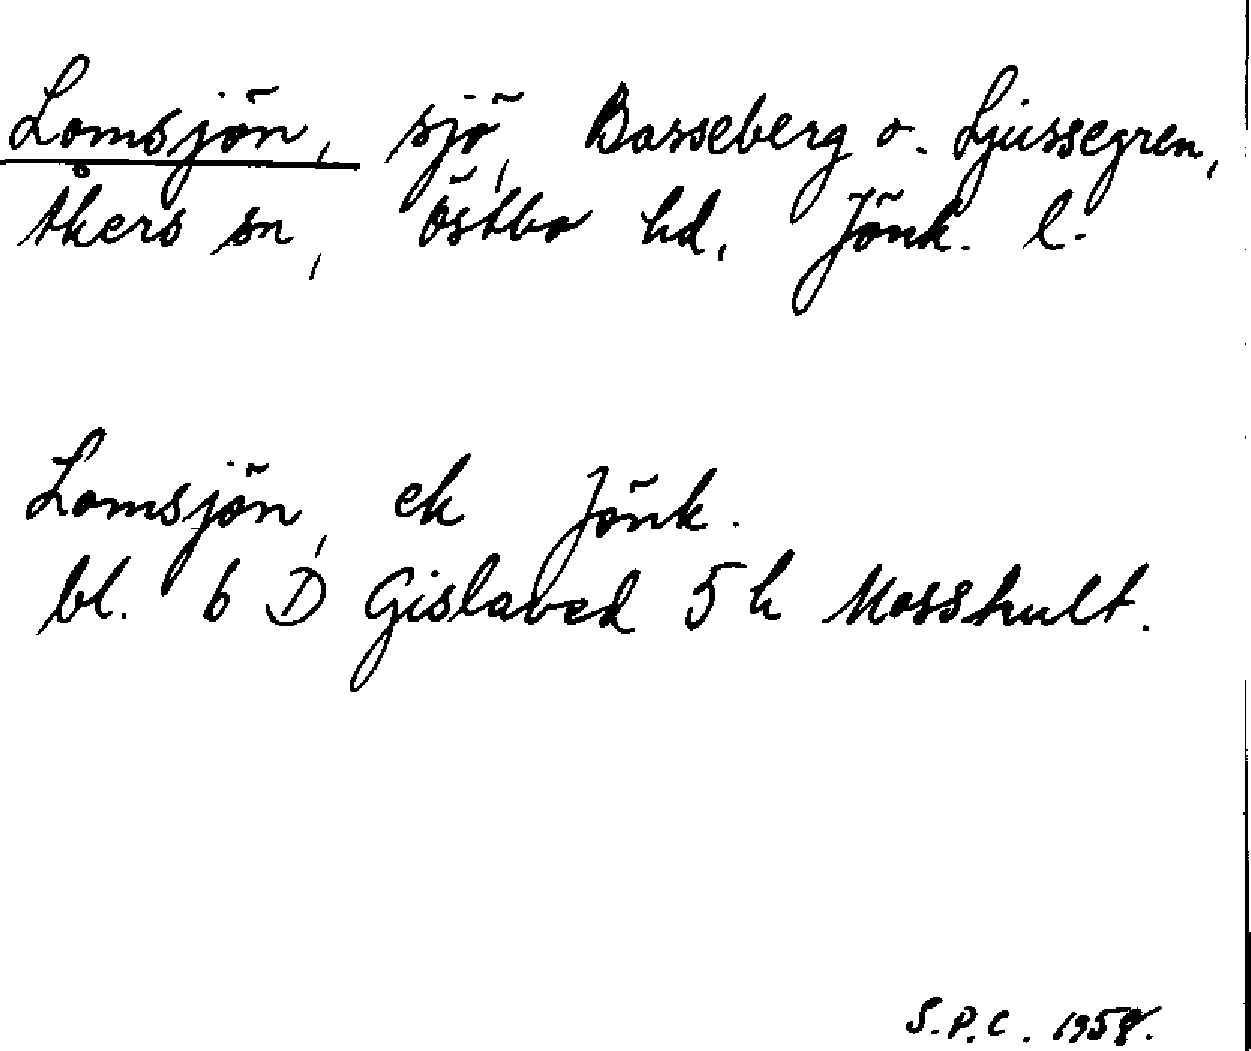 Lomsjön, sjö, Basseberg o. Ljussegren,
Åkers sn, Östbo hd, Jönk. l.
Lomsjön, ek Jönk.
bl. 6 D Gislaved 5 h Mosshult.
S.P.C. 1958.